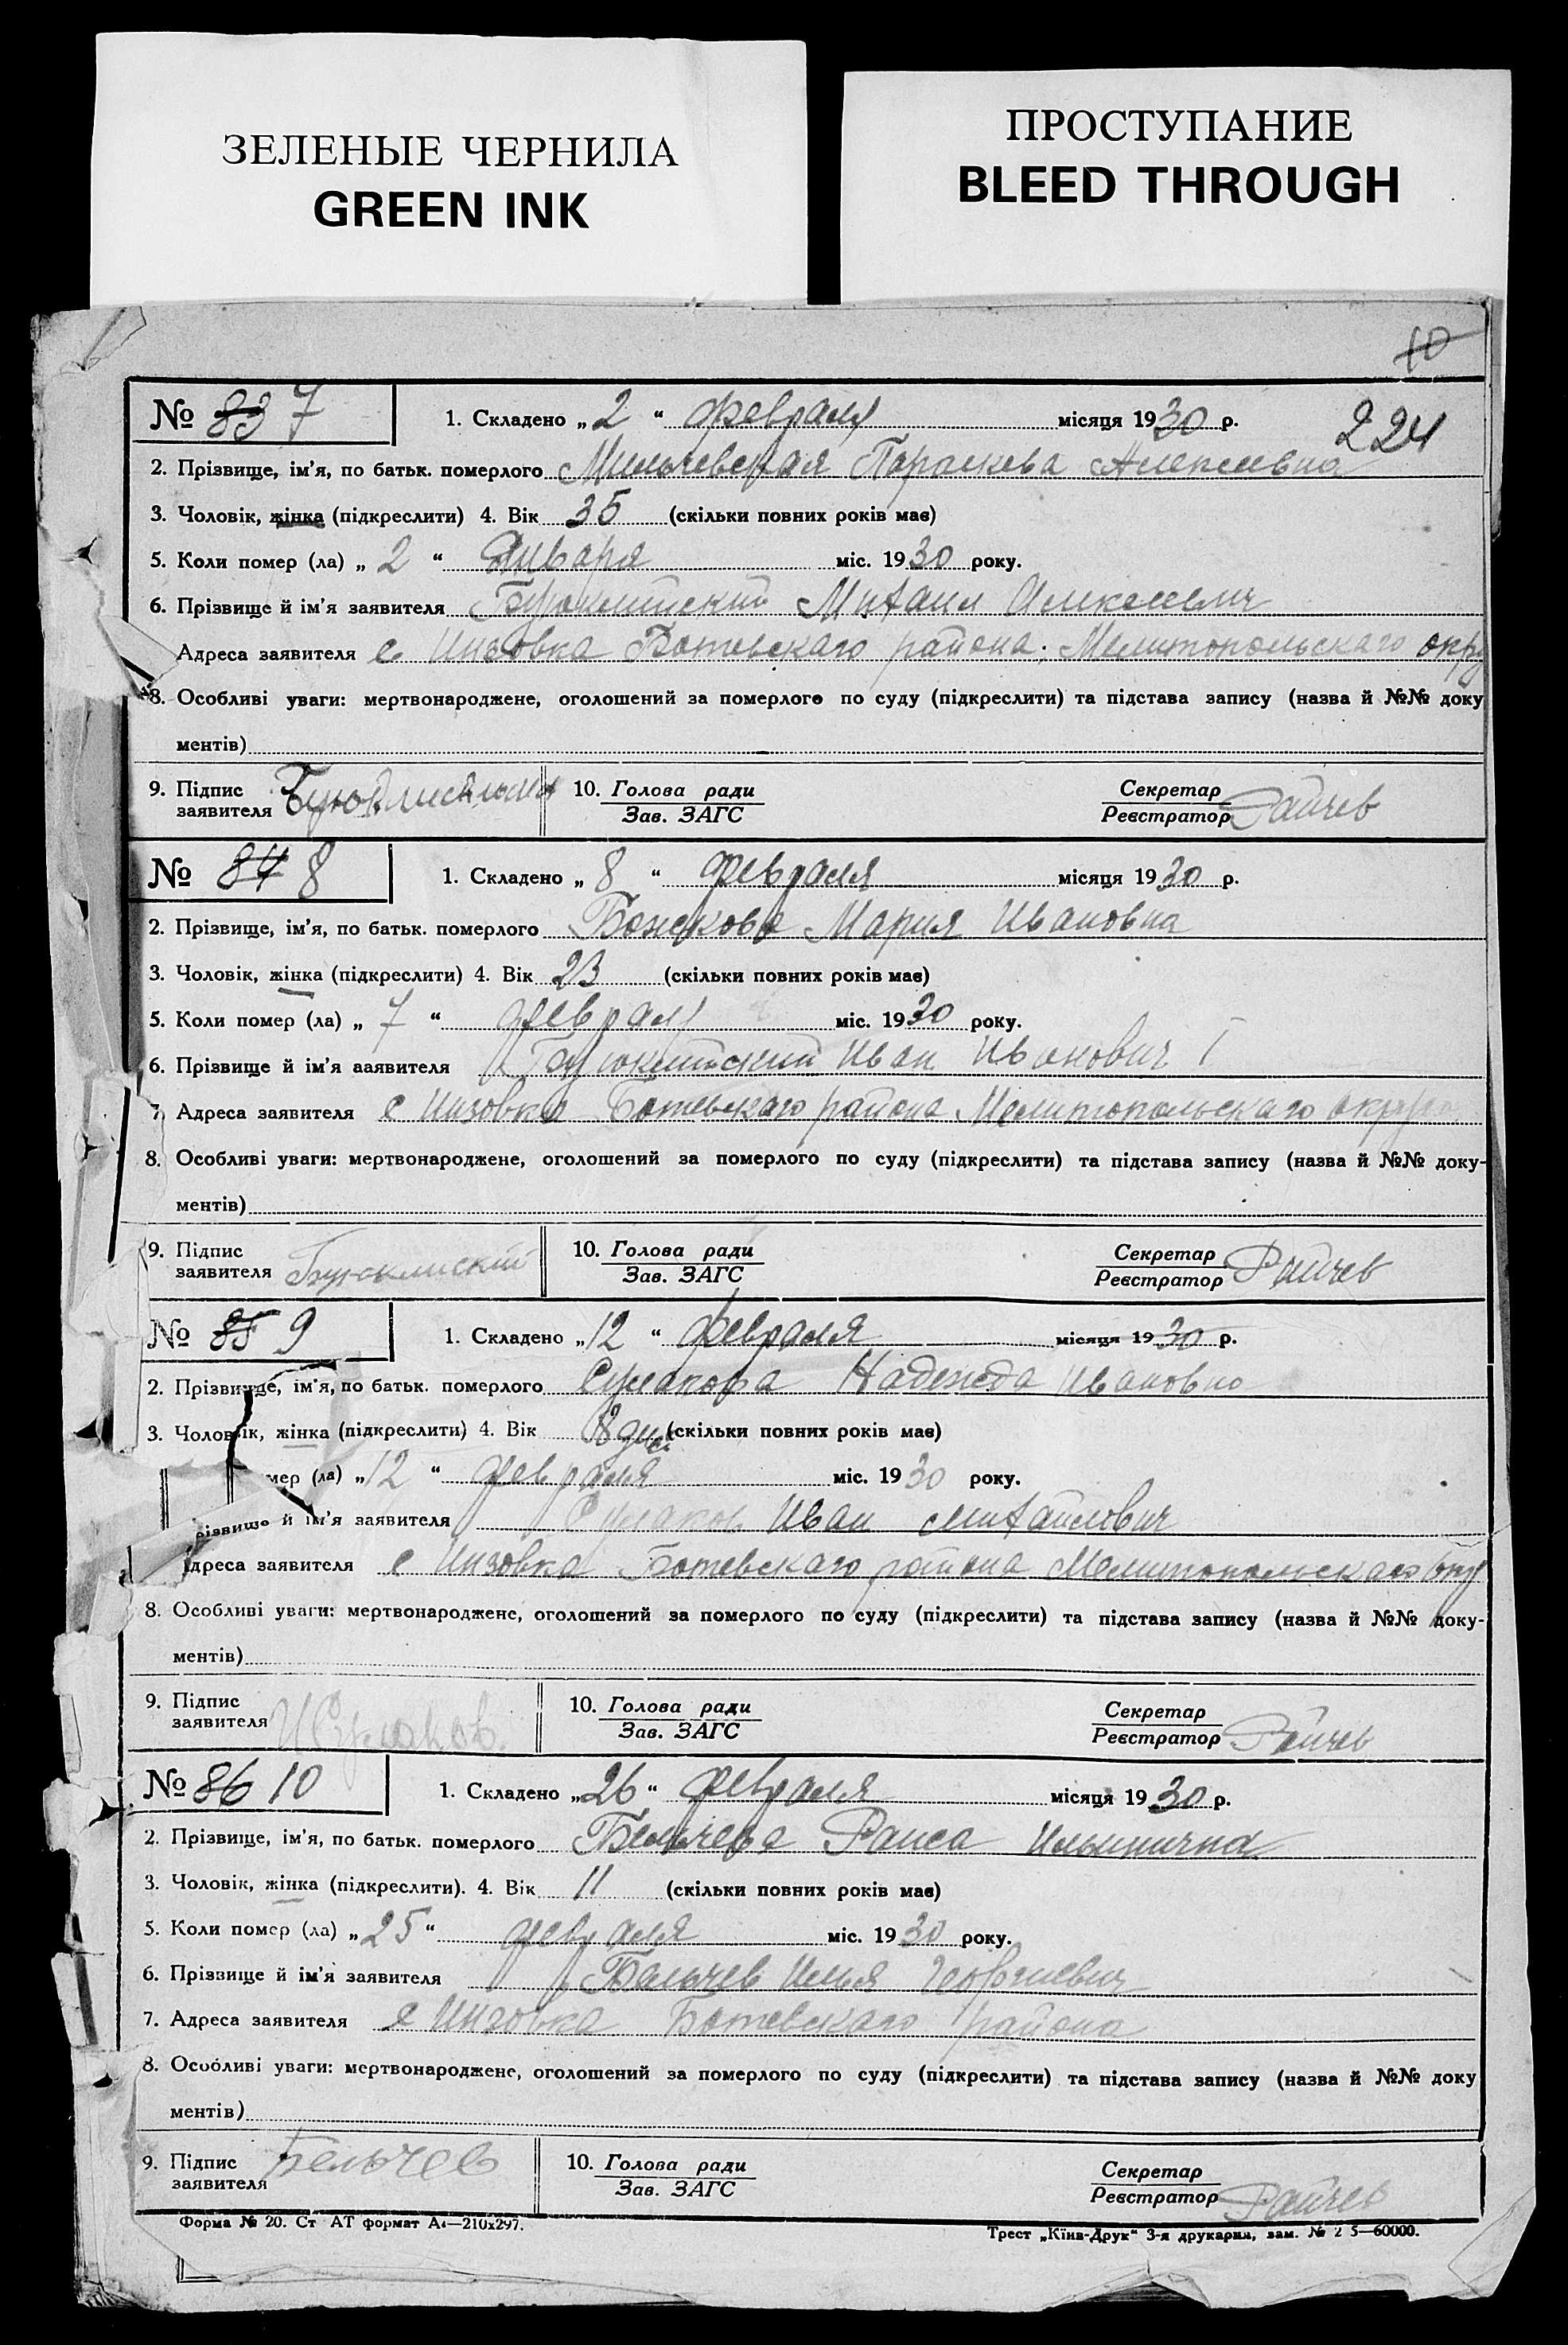 ЗЕЛЕНЫЕ ЧЕРНИЛА
GREEN INK
ПРОСТУПАНИЕ
BLEED THROUGH
10
№ 83 7 1. Складено „2“ февраля місяця 1930 р. 224
2. Прізвище, ім'я, по батьк. померлого Параскева Алексеевна
3. Чоловік, жінка (підкреслити) 4. Вік 35 (скільки повних років має)
5. Коли помер (ла) „2“ Января міс. 1930 року.
6. Прізвище й ім'я заявителя Михаил Алексеевич
Адреса заявителя с Инзовка Ботевскаго района. Мелитопольскаго окру
8. Особливі уваги: мертвонароджене, оголошений за померлого по суду (підкреслити) та підстава запису (назва й №№ доку
ментів)
9. Підпис заявителя 10. Голова ради Зав. ЗАГС Секретар Реєстратор Райчев
№ 84 8 1. Складено „8“ февраля місяця 1930 р.
2. Прізвище, ім'я, по батьк. померлого Божкова Мария Ивановна
3. Чоловік, жінка (підкреслити) 4. Вік 23 (скільки повних років має)
5. Коли помер (ла) „7“ февраля міс. 1930 року.
6. Прізвище й ім'я заявителя Иван Иванович I
7. Адреса заявителя с Инзовка Ботевскаго района Мелитопольскаго округа
8. Особливі уваги: мертвонароджене, оголошений за померлого по суду (підкреслити) та підстава запису (назва й №№ доку-
ментів)
9. Підпис заявителя 10. Голова ради Зав. ЗАГС Секретар Реєстратор Райчев
№ 85 9 1. Складено „12“ февраля місяця 1930 р.
2. Прізвище, ім'я, по батьк. померлого Сумакова Надежда Ивановна
3. Чоловік, жінка (підкреслити) 4. Вік 8 дней (скільки повних років має)
мер (ла) „12“ февраля міс. 1930 року.
різвище й ім'я заявителя Сумаков Иван Михайлович
дреса заявителя с Инзовка Ботевскаго района Мелитопольскаго
8. Особливі уваги: мертвонароджене, оголошений за померлого по суду (підкреслити) та підстава запису (назва й №№ доку-
ментів)
9. Підпис заявителя ИСумаков. 10. Голова ради Зав. ЗАГС Секретар Реєстратор Райчев
№ 86 10 1. Складено „26“ февраля місяця 1930 р.
2. Прізвище, ім'я, по батьк. померлого Бельчева Раиса Ильинична
3. Чоловік, жінка (підкреслити). 4. Вік 11 (скільки повних років має)
5. Коли помер (ла) „25“ февраля міс. 1930 року.
6. Прізвище й ім'я заявителя Бельчев Илья Георгиевич
7. Адреса заявителя с Инзовка Ботевскаго района
8. Особливі уваги: мертвонароджене, оголошений за померлого по суду (підкреслити) та підстава запису (назва й №№ доку
ментів)
9. Підпис заявителя Бельчев 10. Голова ради Зав. ЗАГС Секретар Реєстратор Райчев
Форма № 20. Ст АТ формат А4—210x297. Трест „Київ-Друк“ 3-я друкарня, зам. № 2 5—60000.